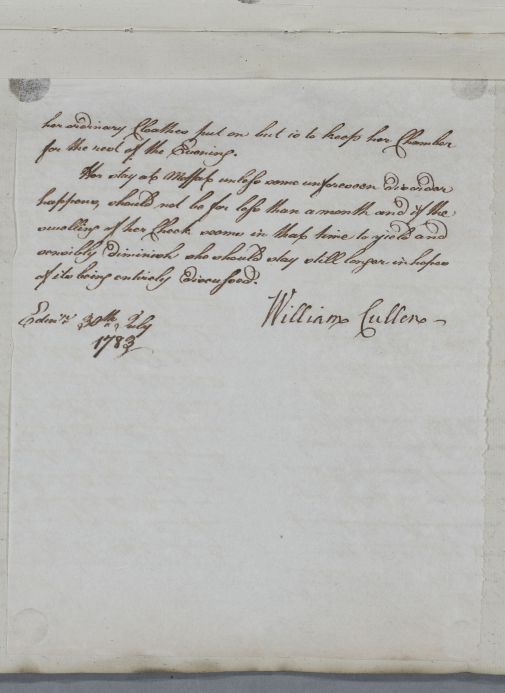 her ordinary Cloathes put on but is to keep her Chamber
for the rest of the Evening.
Her stay at Moffat unless some unforeseen disorder
happens, should not be for less than a month and if the
swelling of her Cheek seems in that time to yield and
sensibly diminish she should stay still longer in hopes
of its being entirely discussed.
William Cullen
Edinr. 30th July
1783